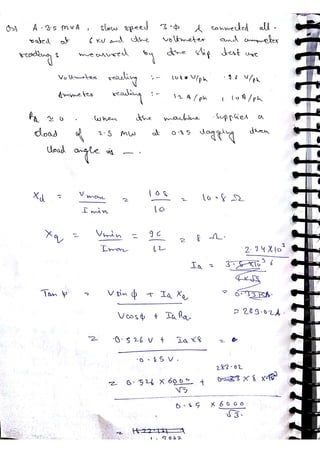 Q3) A 3.5 MVA, slow speed 3-ϕ λ connected alt.
rated at 6 KV and the voltmeter and ammeter
readings measured by the slip test are
Voltmeter reading :- 108 V/ph, 96 V/ph
Ammeter reading :- 12 A/ph, 10 A/ph
RA ≃ 0. When the machine supplies a
load of 2.5 MW at 0.85 lagging then
load angle is —.
Xd = Vmax / Imin = 108 / 10 = 10.8 Ω
Xq = Vmin / Imax = 96 / 12 = 8 Ω.
2.94X10³
Ia =
= 283.02A
Tan ψ = V sin ϕ + Ia Xq / V cos ϕ + Ia Ra
= 0.526 V + Ia X8 / 0.85 V.
283.02
= 0.526 X 6000 / √3 + X 8 / 0.85 X 6000 / √3.